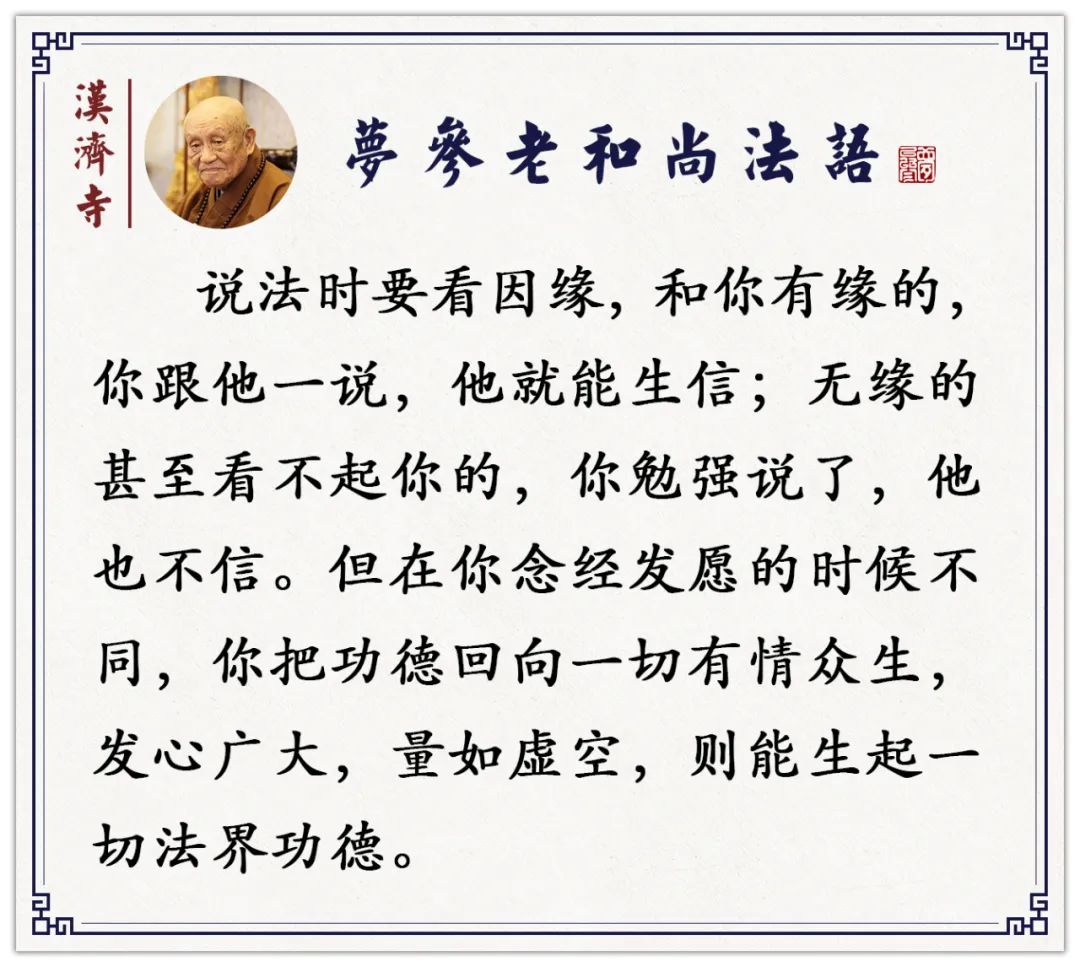 漢濟寺
夢參老和尚法語
说法时要看因缘，和你有缘的，
你跟他一说，他就能生信；无缘的
甚至看不起你的，你勉强说了，他
也不信。但在你念经发愿的时候不
同，你把功德回向一切有情众生，
发心广大，量如虚空，则能生起一
切法界功德。